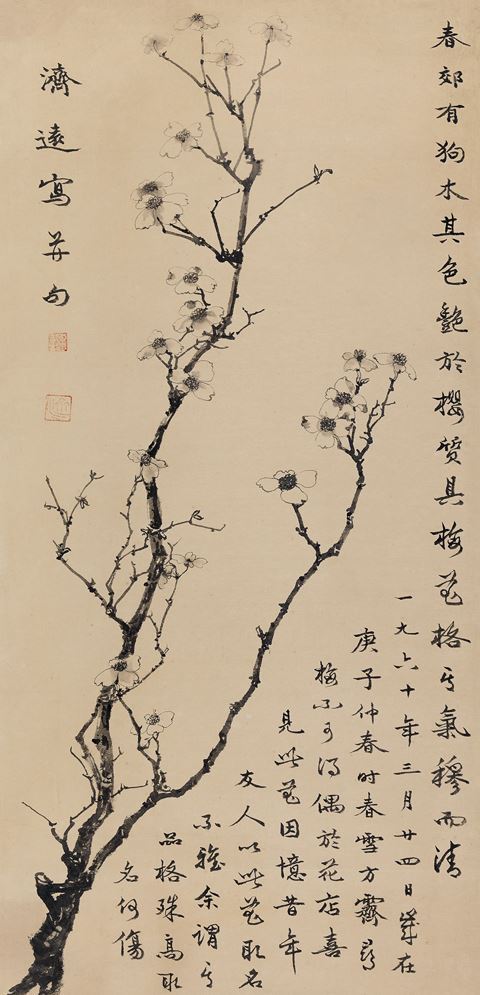 春郊有狗木其色艷於櫻質具梅花格其氣穆而清
一九六十年三月廿四日歲在
庚子仲春時春雪方霽尋
梅不可得偶於花店喜
見此花因憶昔年
友人以此花取名
不雅余謂其
品格殊高取
名何傷
濟遠寫并句